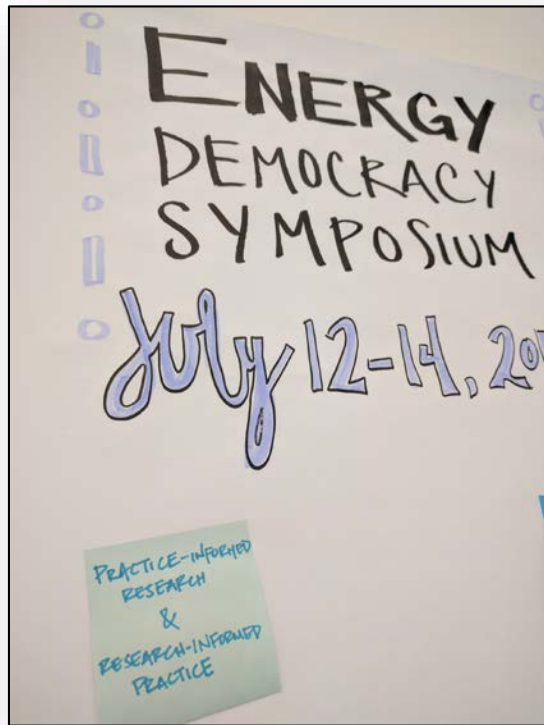 ENERGY
DEMOCRACY
SYMPOSIUM
July 12-14, 20
PRACTICE-INFORMED
RESEARCH
&
RESEARCH-INFORMED
PRACTICE